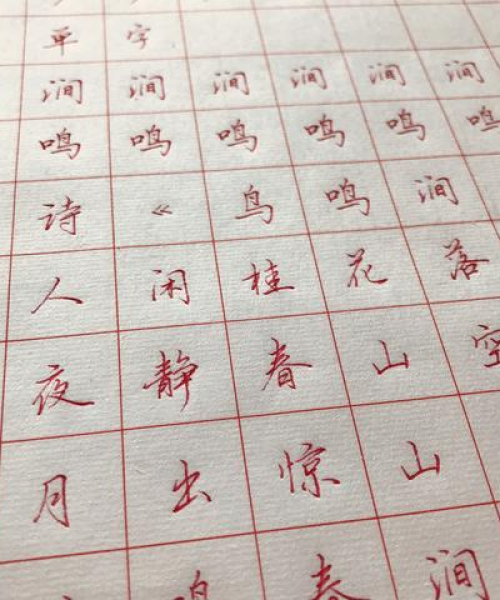 单字
涧涧涧涧涧涧
鸣鸣鸣鸣鸣鸣
诗《鸟鸣涧
人闲桂花落
夜静春山空
月出惊山
鸣春涧